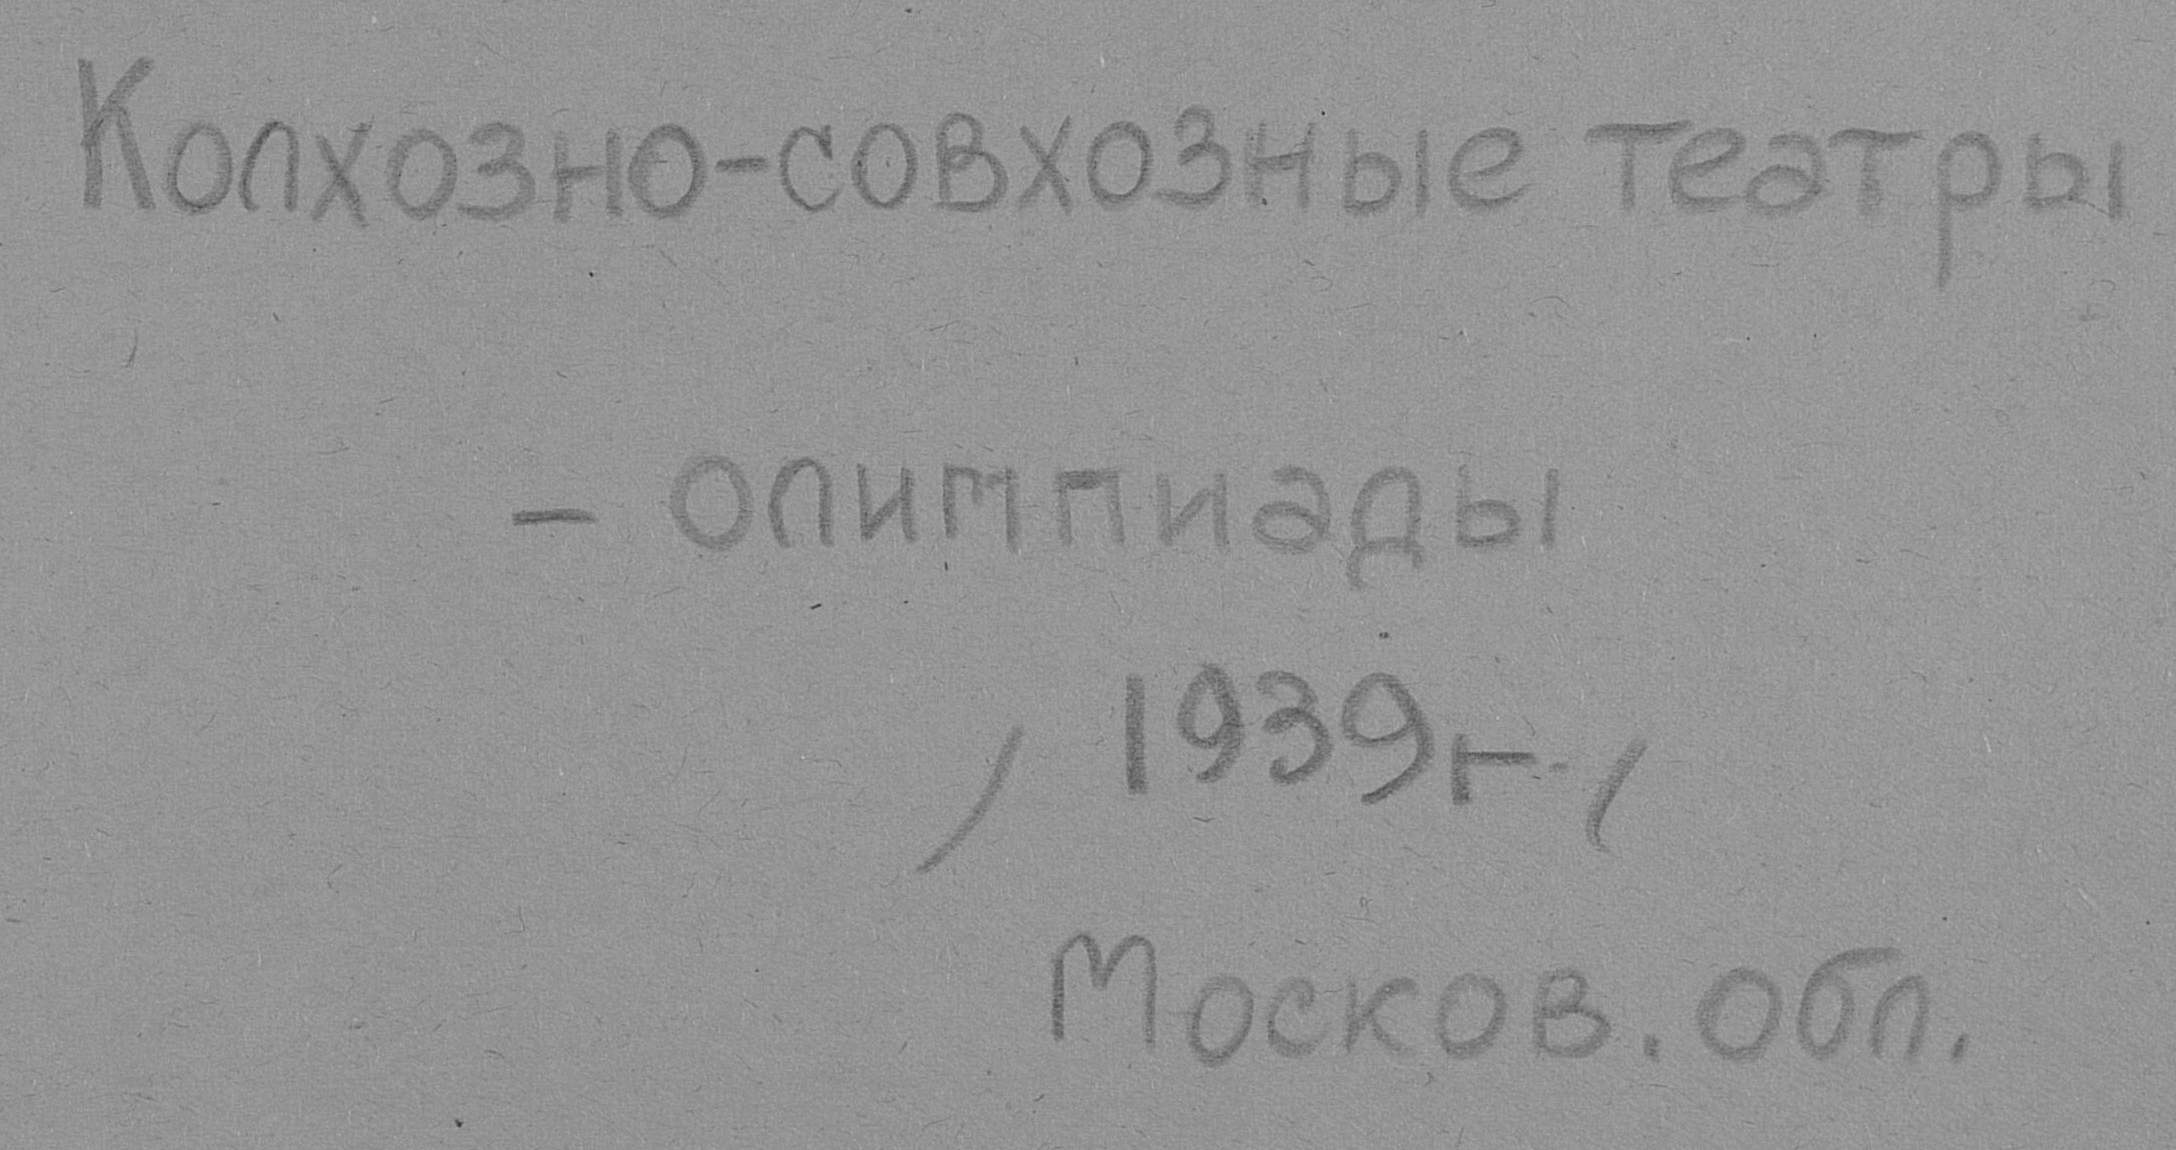 Колхозно-совхозные театры
- олимпиады
, 1939г.,
Москов. обл.